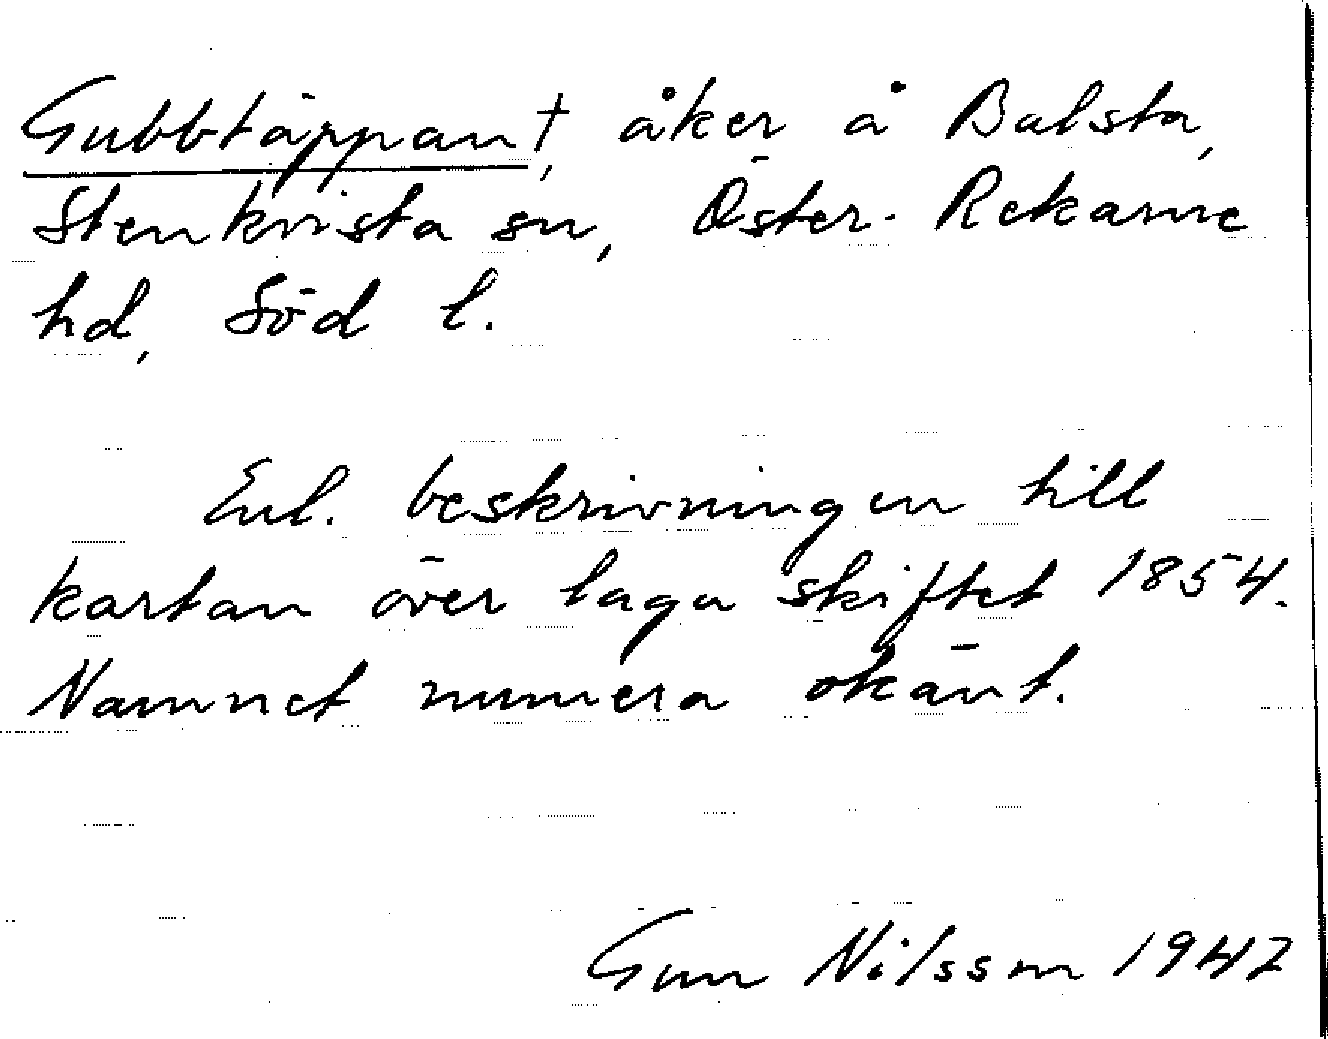 Gubbtäppan†, åker å Balsta,
Stenkvista sn, Öster-Rekarne
hd, Söd l.
Enl. beskrivningen till
kartan över laga skiftet 1854.
Namnet numera okänt.
Gun Nilsson 1947